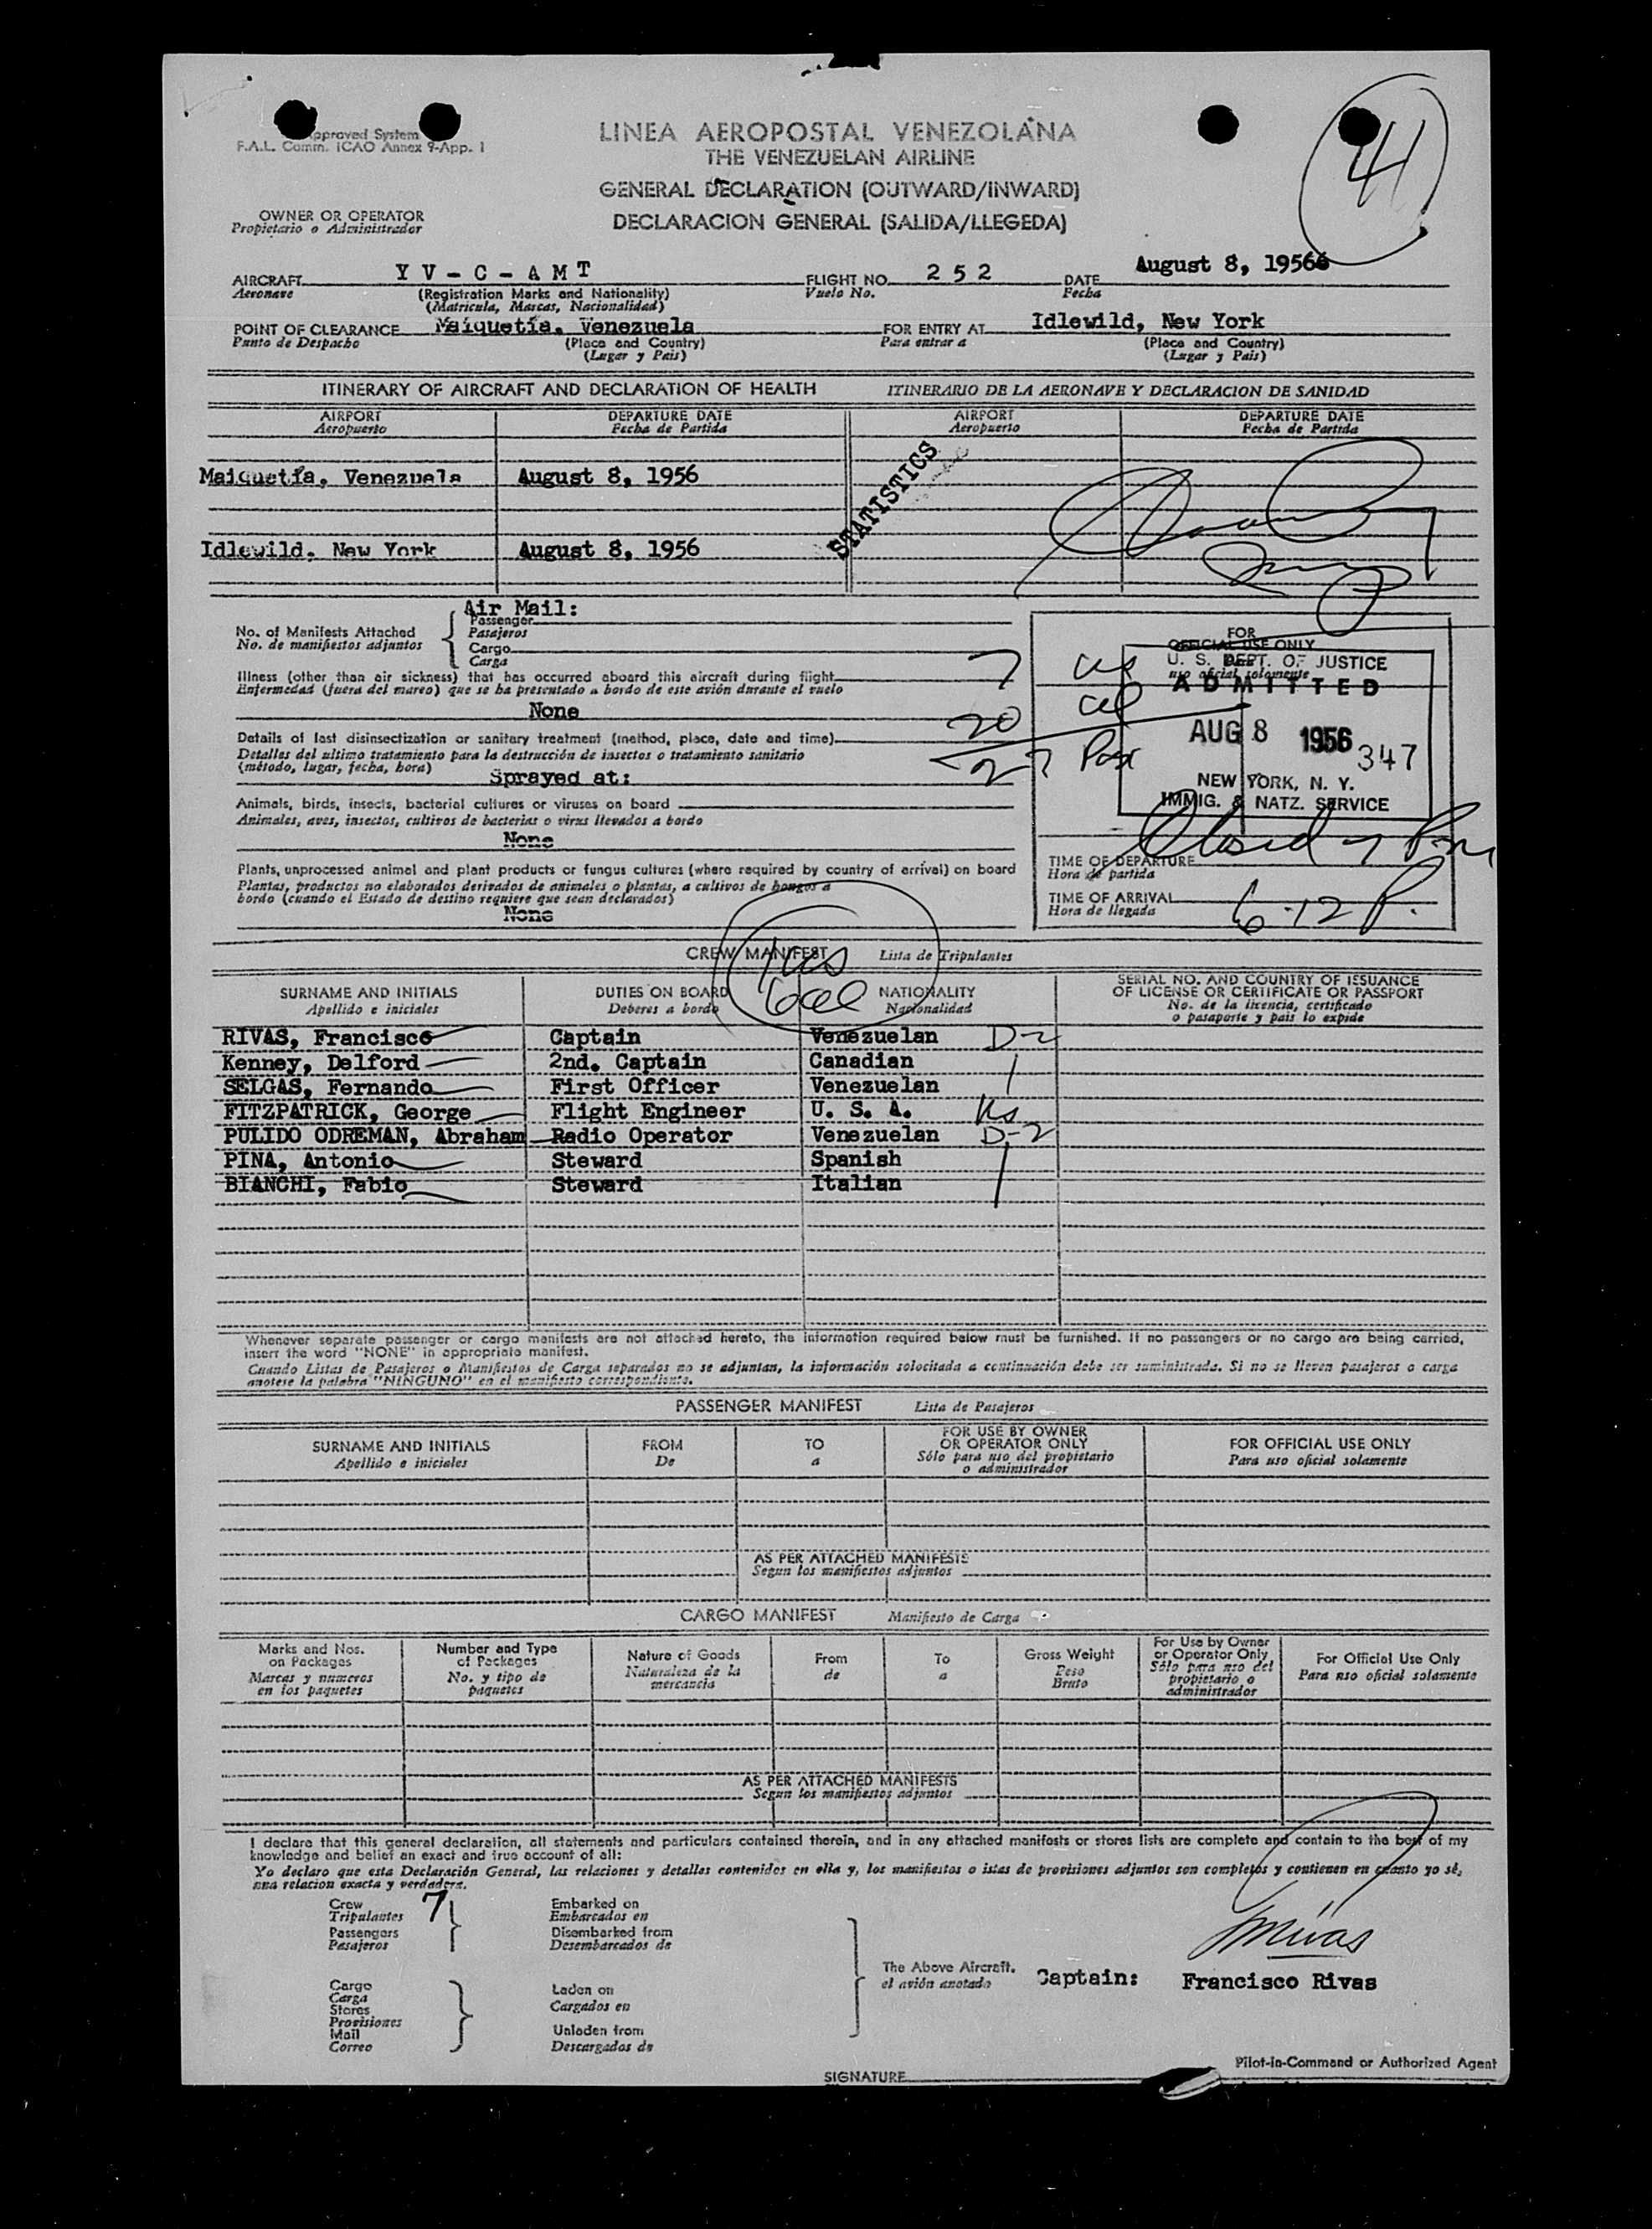 41
Approved System
F.A.L. Comm. ICAO Annex 9-App. 1
LINEA AEROPOSTAL VENEZOLANA
THE VENEZUELAN AIRLINE
GENERAL DECLARATION (OUTWARD/INWARD)
DECLARACION GENERAL (SALIDA/LLEGEDA)
OWNER OR OPERATOR
Propietario o Administrador
AIRCRAFT Y V - C - A M T FLIGHT NO. 2 5 2 DATE August 8, 1956
Aeronave (Registration Marks and Nationality) Vuelo No. Fecha
(Matricula, Marcas, Nacionalidad)
POINT OF CLEARANCE Maiquetia, Venezuela FOR ENTRY AT Idlewild, New York
Punto de Despacho (Place and Country) Para entrar a (Place and Country)
(Lugar y Pais) (Lugar y Pais)
ITINERARY OF AIRCRAFT AND DECLARATION OF HEALTH ITINERARIO DE LA AERONAVE Y DECLARACION DE SANIDAD
AIRPORT DEPARTURE DATE AIRPORT DEPARTURE DATE
Aeropuerto Fecha de Partida Aeropuerto Fecha de Partida
STATISTICS
Maiquetia, Venezuela August 8, 1956
Idlewild, New York August 8, 1956
Air Mail:
No. of Manifests Attached Passenger
No. de manifiestos adjuntos Pasajeros
Cargo
Carga
FOR
OFFICIAL USE ONLY
uso oficial solamente
U. S. DEPT. OF JUSTICE
ADMITTED
AUG 8 1956 347
NEW YORK, N. Y.
IMMIG. & NATZ. SERVICE
Illness (other than air sickness) that has occurred aboard this aircraft during flight 7 us
Enfermedad (fuera del mareo) que se ha presentado a bordo de este avión durante el vuelo
None
20 cel
Details of last disinsectization or sanitary treatment (method, place, date and time)
Detalles del ultimo tratamiento para la destrucción de insectos o tratamiento sanitario
(método, lugar, fecha, hora) 27 Pax
Sprayed at:
Animals, birds, insects, bacterial cultures or viruses on board
Animales, aves, insectos, cultivos de bacterias o virus llevados a bordo
None
Closed 7 Pm
Plants, unprocessed animal and plant products or fungus cultures (where required by country of arrival) on board
Plantas, productos no elaborados derivados de animales o plantas, a cultivos de hongos a
bordo (cuando el Estado de destino requiere que sean declarados)
None
TIME OF DEPARTURE
Hora de partida
TIME OF ARRIVAL 6:12 P.
Hora de llegada
CREW MANIFEST Lista de Tripulantes
1 us
6 cel
SURNAME AND INITIALS DUTIES ON BOARD NATIONALITY SERIAL NO. AND COUNTRY OF ISSUANCE
OF LICENSE OR CERTIFICATE OR PASSPORT
Apellido e iniciales Deberes a bordo Nacionalidad No. de la licencia, certificado
o pasaporte y pais lo expide
RIVAS, Francisco Captain Venezuelan D-2
Kenney, Delford 2nd. Captain Canadian
SELGAS, Fernando First Officer Venezuelan
FITZPATRICK, George Flight Engineer U. S. A. Us
PULIDO ODREMAN, Abraham Radio Operator Venezuelan D-2
PINA, Antonio Steward Spanish
BIANCHI, Fabio Steward Italian
Whenever separate passenger or cargo manifests are not attached hereto, the information required below must be furnished. If no passengers or no cargo are being carried,
insert the word "NONE" in appropriate manifest.
Cuando Listas de Pasajeros o Manifiestos de Carga separados no se adjuntan, la información solocitada a continuación debe ser suministrada. Si no se lleven pasajeros o carga
anotese la palabra "NINGUNO" en el manifiesto correspondiente.
PASSENGER MANIFEST Lista de Pasajeros
SURNAME AND INITIALS FROM TO FOR USE BY OWNER OR OPERATOR ONLY FOR OFFICIAL USE ONLY
Apellido e iniciales De a Sólo para uso del propietario o administrador Para uso oficial solamente
AS PER ATTACHED MANIFESTS
Segun los manifiestos adjuntos
CARGO MANIFEST Manifiesto de Carga
Marks and Nos. on Packages Number and Type of Packages Nature of Goods From To Gross Weight For Use by Owner or Operator Only For Official Use Only
Marcas y numeros en los paquetes No. y tipo de paquetes Naturaleza de la mercancia de a Peso Bruto Sólo para uso del propietario o administrador Para uso oficial solamente
AS PER ATTACHED MANIFESTS
Segun los manifiestos adjuntos
I declare that this general declaration, all statements and particulars contained therein, and in any attached manifests or stores lists are complete and contain to the best of my
knowledge and belief an exact and true account of all:
Yo declaro que esta Declaración General, las relaciones y detalles contenidos en ella y, los manifiestos o istas de provisiones adjuntos son completos y contienen en cuanto yo sé,
una relacion exacta y verdadera.
Crew 7 Embarked on
Tripulantes Embarcados en
Passengers Disembarked from
Pasajeros Desembarcados de
The Above Aircraft. Captain: Francisco Rivas
el avión anotado
Cargo Laden on
Carga Cargados en
Stores
Provisiones
Mail Unladen from
Correo Descargados de
Pilot-in-Command or Authorized Agent
SIGNATURE